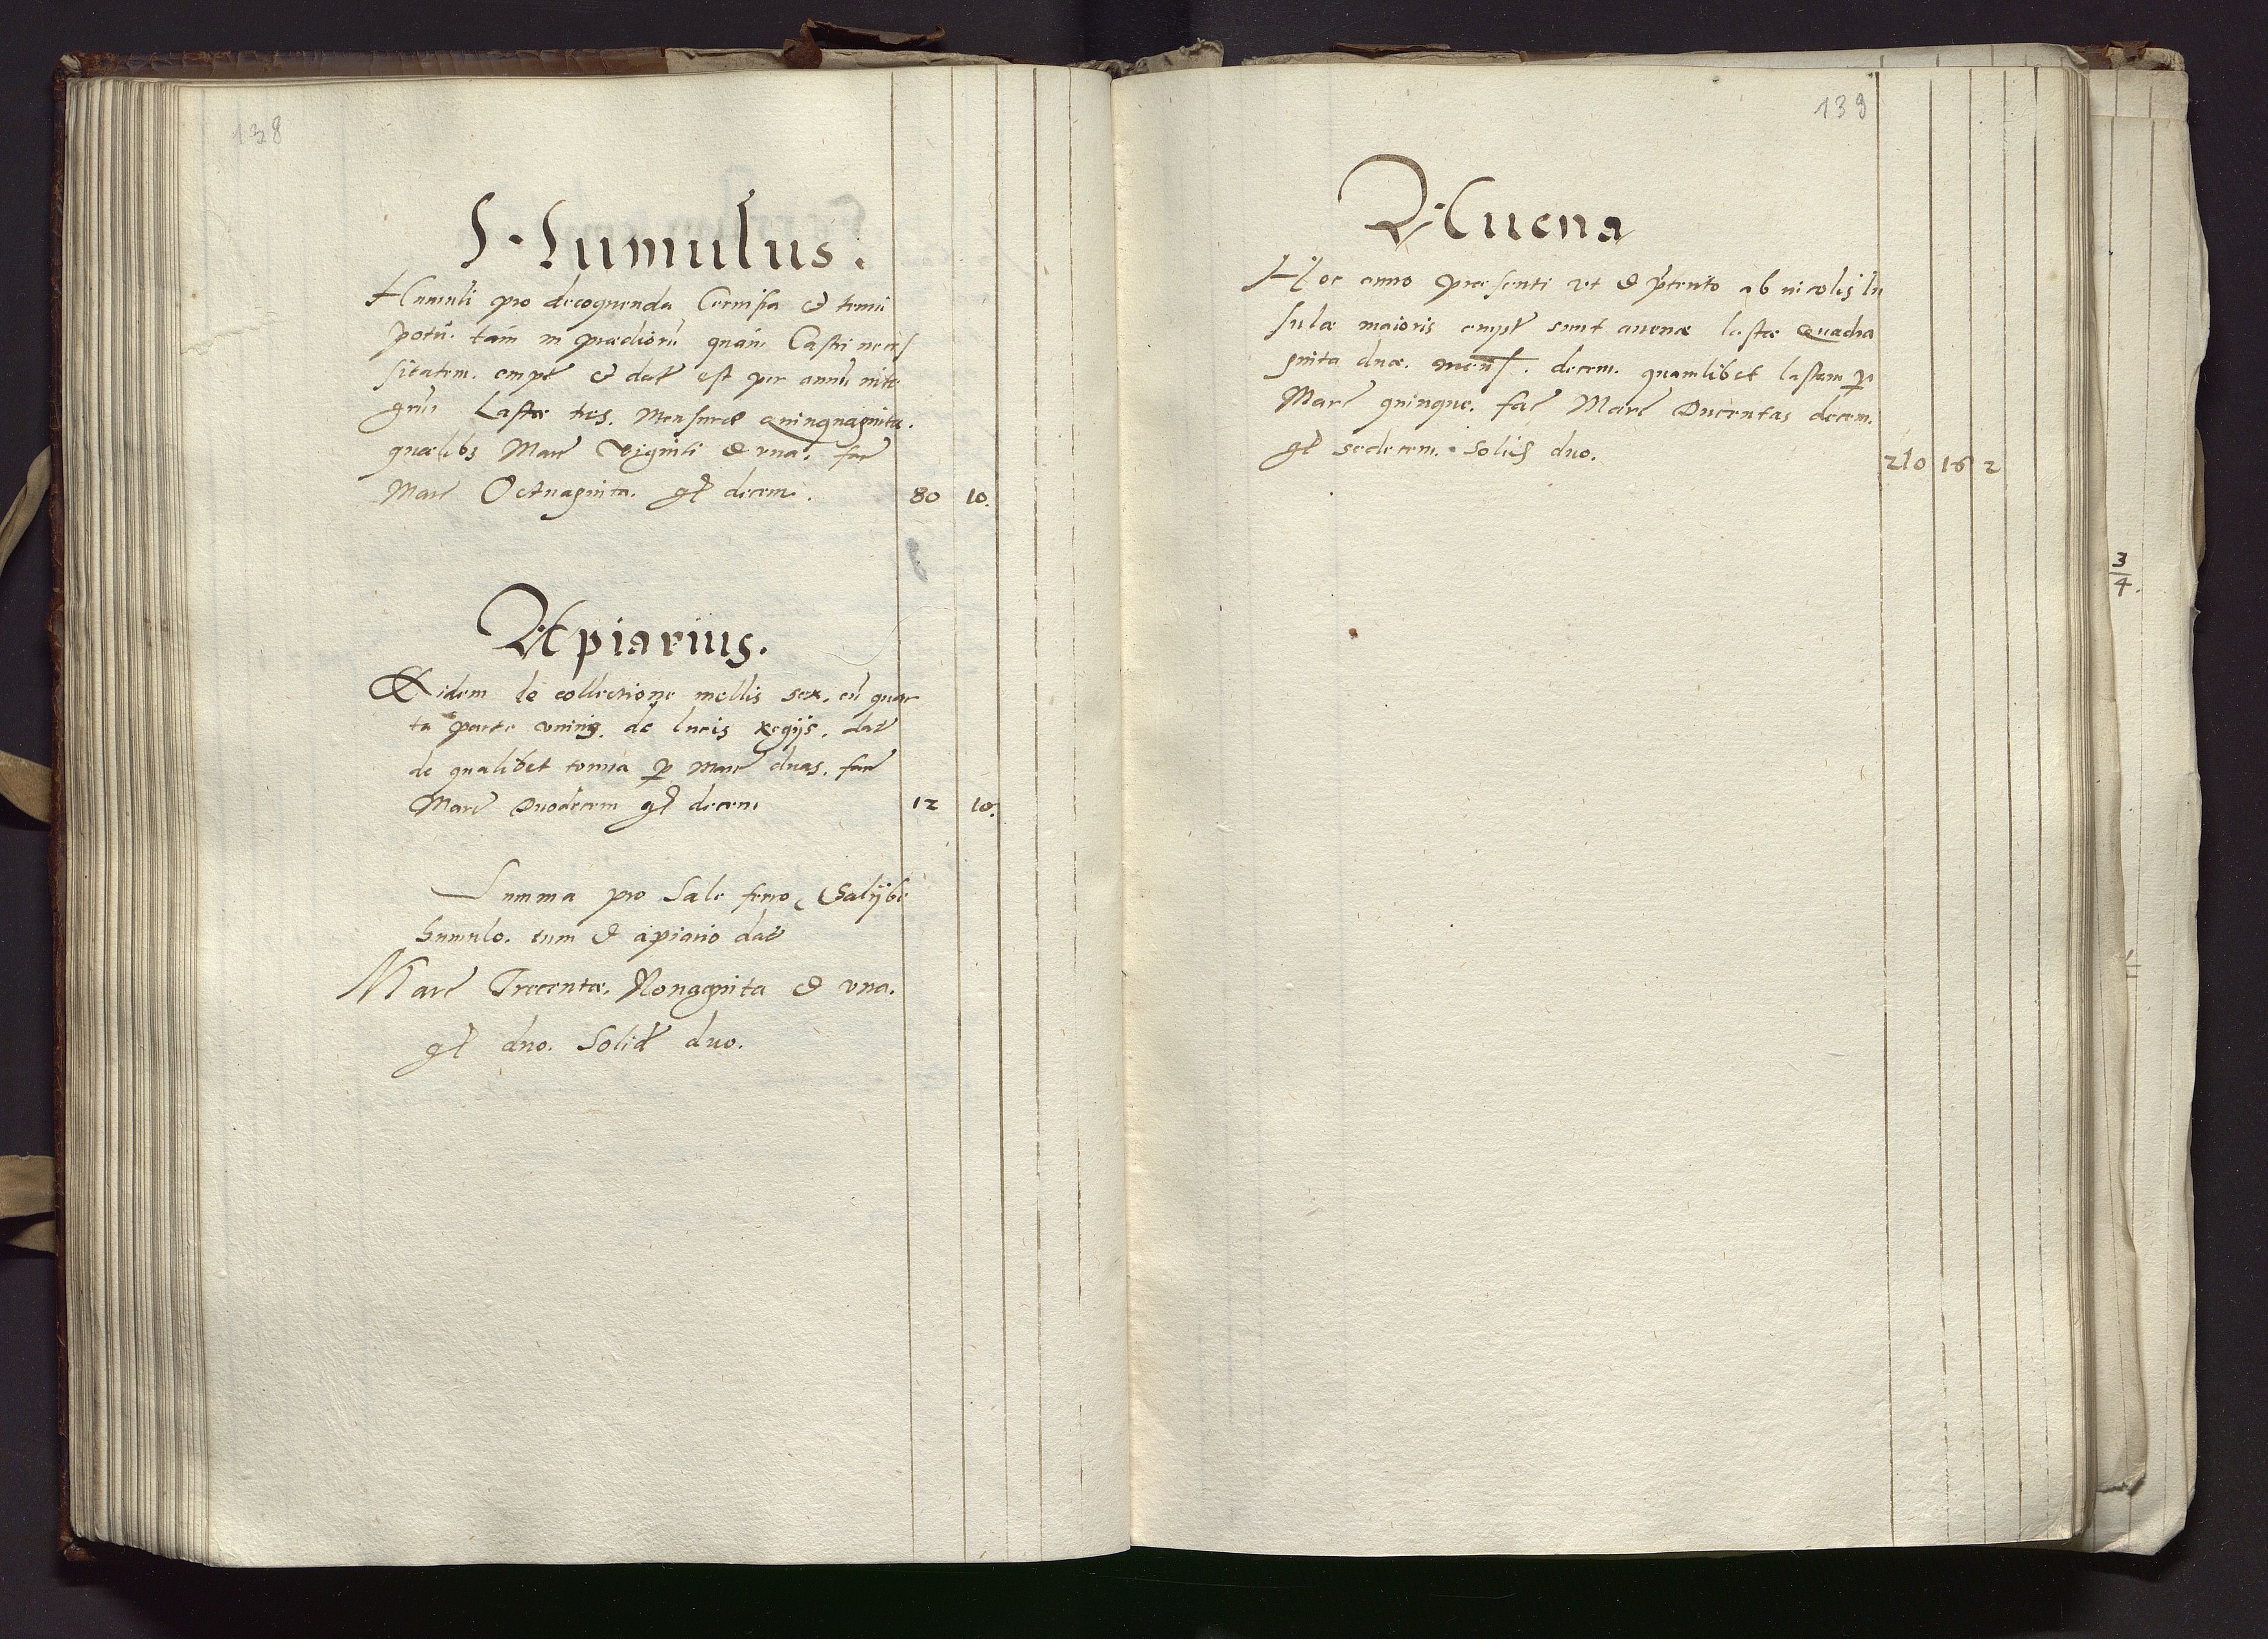 138
Humulus.
Humuli pro decoquenda Cervisia & tenui
potu. tam in praedioru quam Castri neces
sitatem. empt & dat est per annu inte
gru Lastae tres. Mensurae Quinquaginta.
quaelibz Marc Viginti & vna. fac
Marc Octuaginta. gr decem. 80 10.
Apiarius.
Eidem de collectione mellis sex. cu quar
ta parte vnius. de lucis regijs. dat
de qualibet tonna p Marc duas. fac
Marc Duodecem gr decem 12 10.
Summa pro Sale ferro Calijbe
humulo. tum & apiario dat
Marc Trecentae. Nonaginta & vna.
gr duo. Solid duo.
139
Auena
Hoc anno praesenti vt & pterito ab incolis In
sulae maioris empt sunt avenae lastae Quadra
ginta duae. mens. decem. quamlibet lastam p
Marc quinque. fac Marc Ducentas decem.
gr sedecem. Solid duo. 210 16 2
3
4.